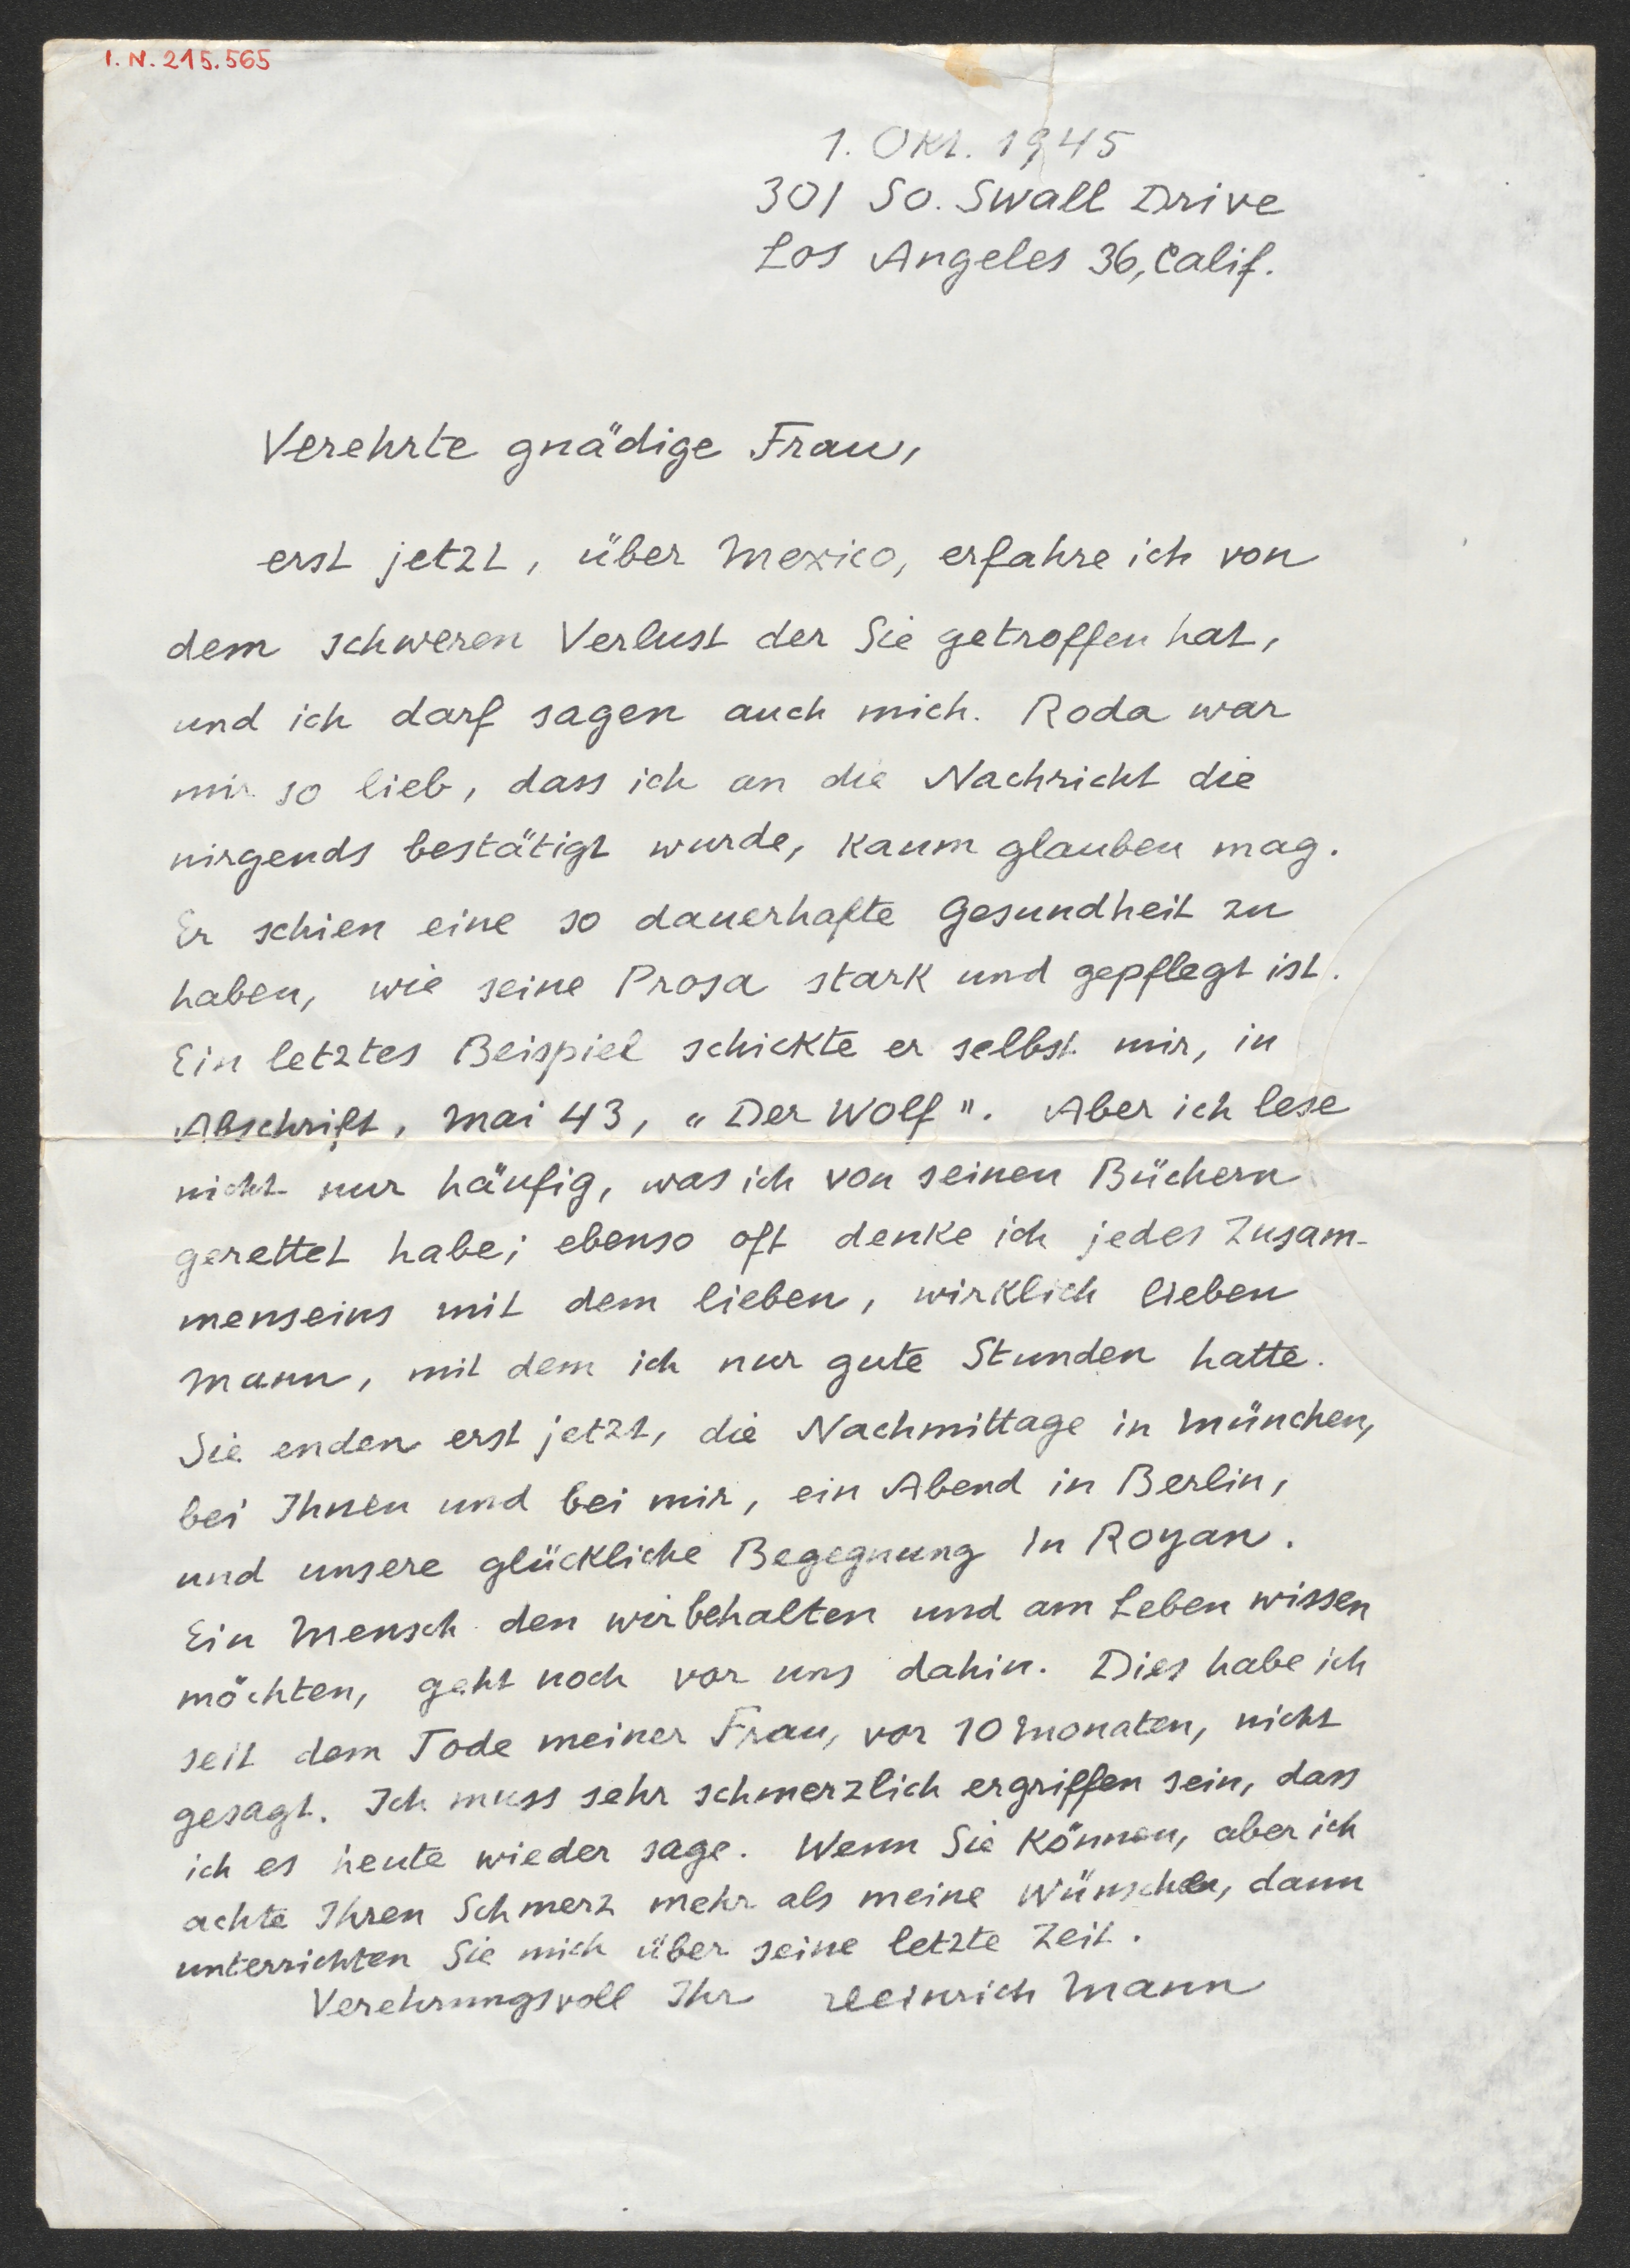 I. N. 215.565
1. Okt. 1945
301 So. Swall Drive
Los Angeles 36, Calif.
Verehrte gnädige Frau,
erst jetzt, über Mexico, erfahre ich von
dem schweren Verlust der Sie getroffen hat,
und ich darf sagen auch mich. Roda war
mir so lieb, dass ich an die Nachricht die
nirgends bestätigt wurde, kaum glauben mag.
Er schien eine so dauerhafte Gesundheit zu
haben, wie seine Prosa stark und gepflegt ist.
Ein letztes Beispiel schickte er selbst mir, in
Abschrift, Mai 43, „Der Wolf". Aber ich lese
nicht nur häufig, was ich von seinen Büchern
gerettet habe; ebenso oft denke ich jedes Zusam-
menseins mit dem lieben, wirklich lieben
Mann, mit dem ich nur gute Stunden hatte.
Sie enden erst jetzt, die Nachmittage in München,
bei Ihnen und bei mir, ein Abend in Berlin,
und unsere glückliche Begegnung in Royan.
Ein Mensch den wir behalten und am Leben wissen
möchten, geht noch vor uns dahin. Dies habe ich
seit dem Tode meiner Frau, vor 10 Monaten, nicht
gesagt. Ich muss sehr schmerzlich ergriffen sein, dass
ich es heute wieder sage. Wenn Sie können, aber ich
achte Ihren Schmerz mehr als meine Wünsche, dann
unterrichten Sie mich über seine letzte Zeit.
Verehrungsvoll Ihr Heinrich Mann